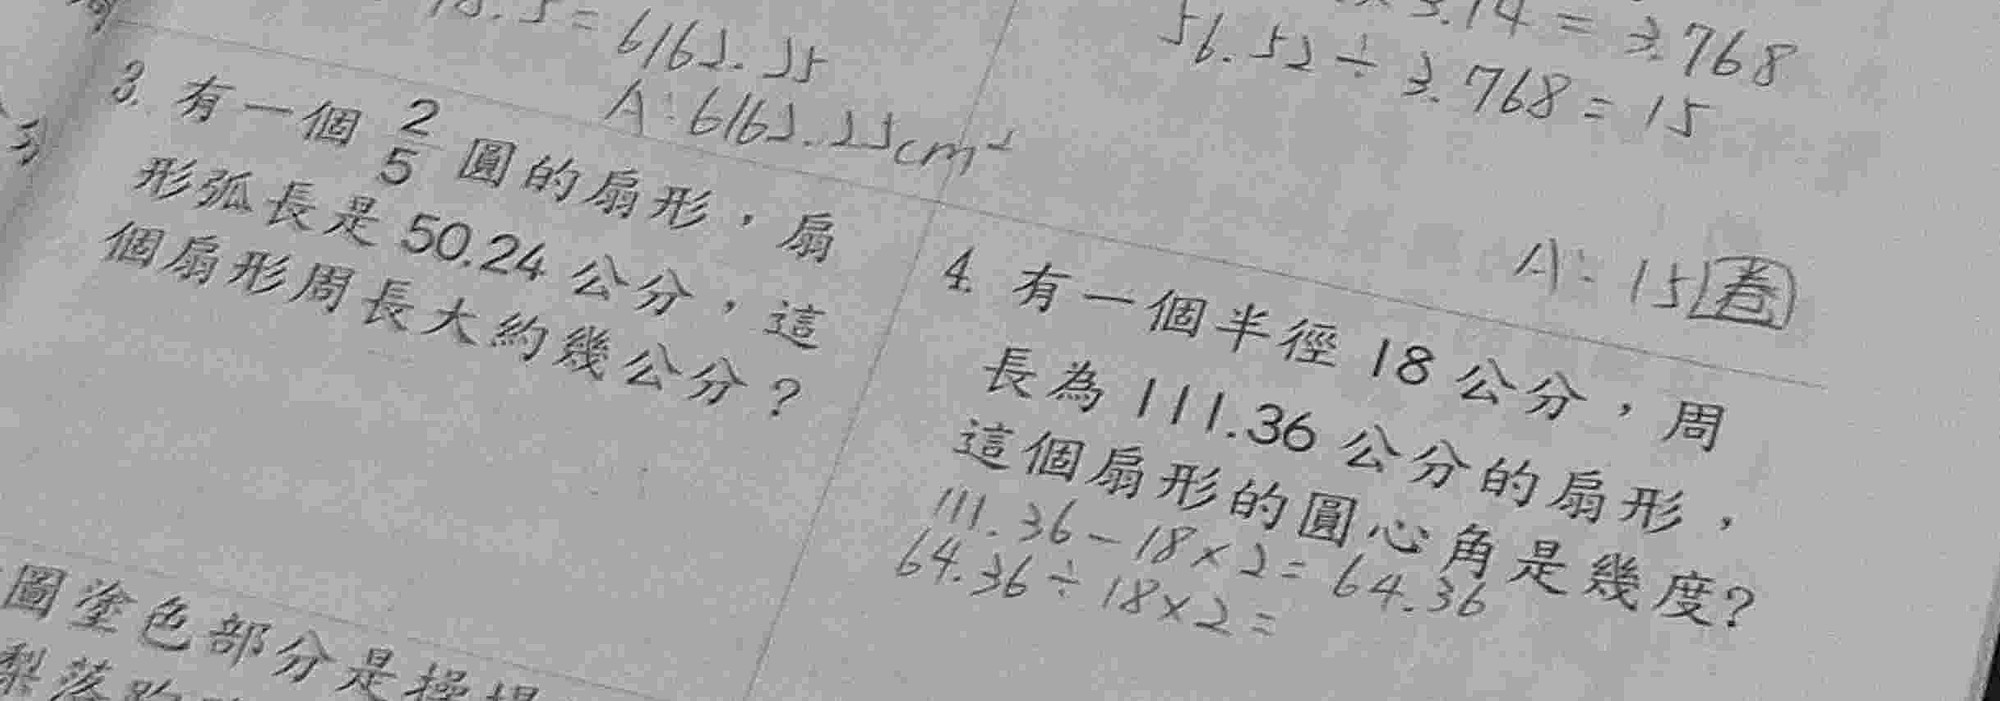 8.5=6162.25
A:6162.25cm²
3.14=3.768
56.52÷3.768=15
A:15卷
3. 有一個 2/5 圓的扇形，扇
形弧長是 50.24 公分，這
個扇形周長大約幾公分？
4. 有一個半徑 18 公分，周
長為 111.36 公分的扇形，
這個扇形的圓心角是幾度？
111.36-18×2=64.36
64.36÷18×2=
圖塗色部分是操場
梨落